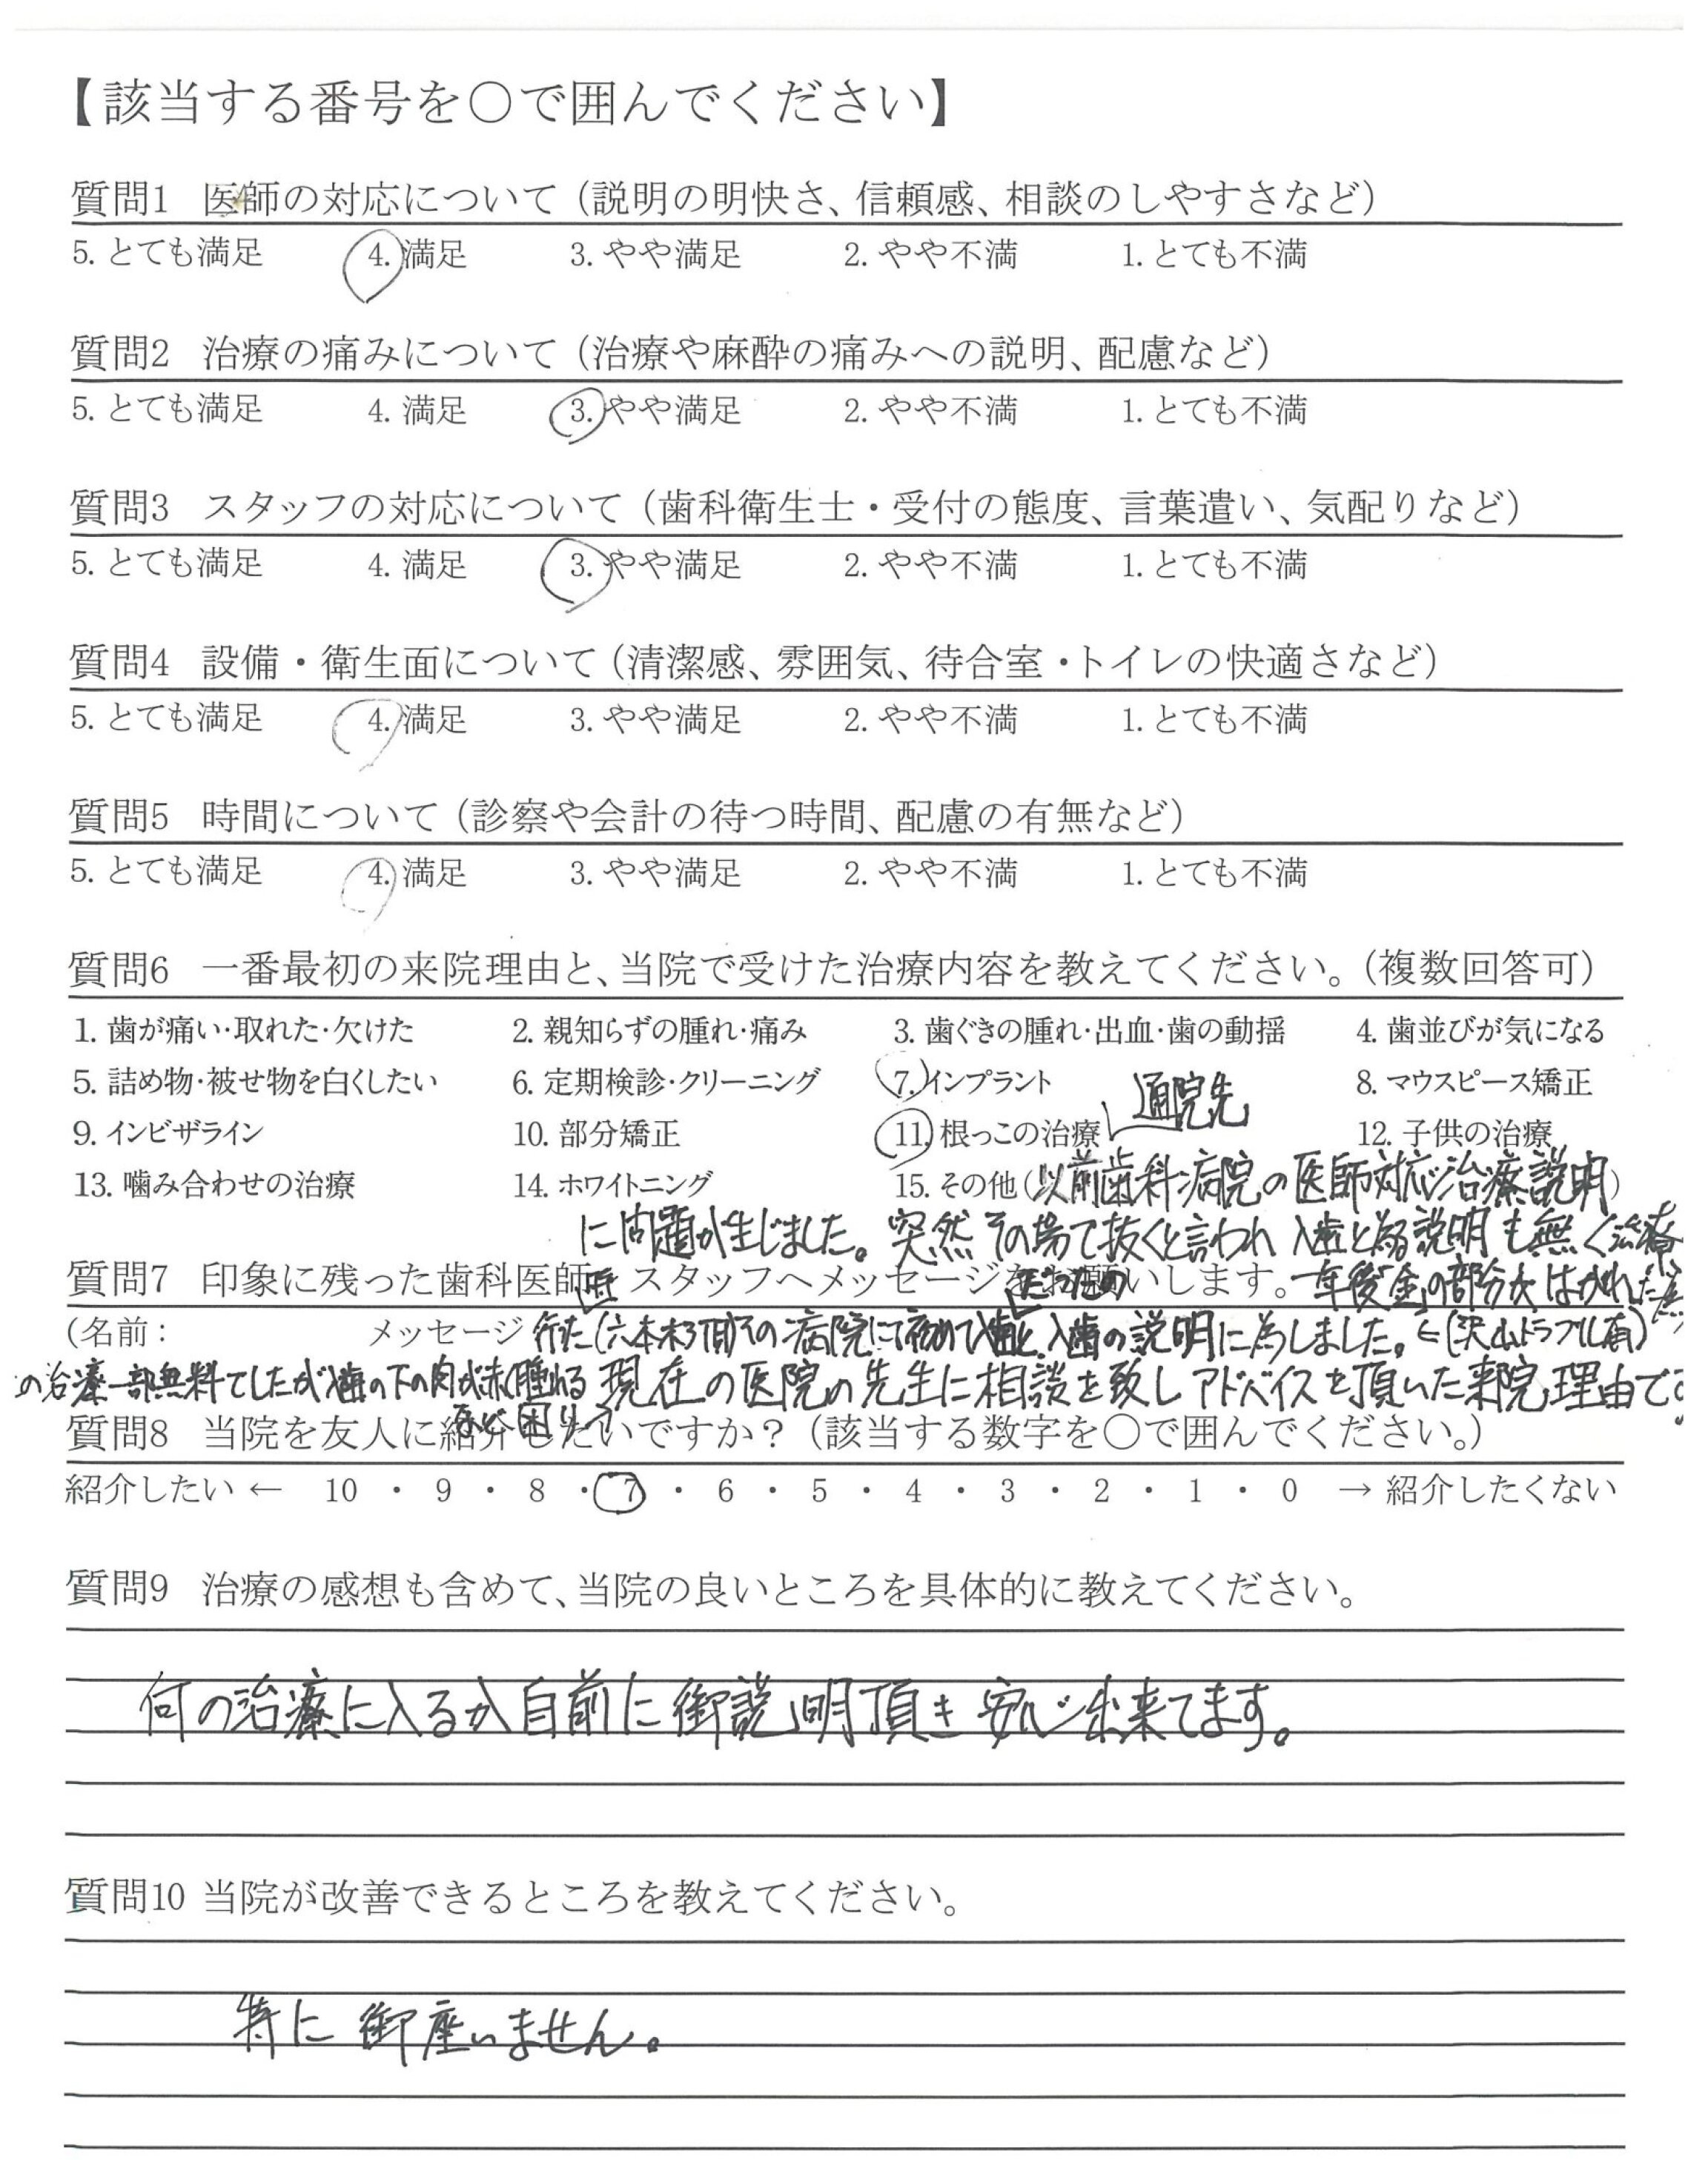 【該当する番号を〇で囲んでください】
質問1 医師の対応について（説明の明快さ、信頼感、相談のしやすさなど）
5. とても満足 4. 満足 3. やや満足 2. やや不満 1. とても不満
質問2 治療の痛みについて（治療や麻酔の痛みへの説明、配慮など）
5. とても満足 4. 満足 3. やや満足 2. やや不満 1. とても不満
質問3 スタッフの対応について（歯科衛生士・受付の態度、言葉遣い、気配りなど）
5. とても満足 4. 満足 3. やや満足 2. やや不満 1. とても不満
質問4 設備・衛生面について（清潔感、雰囲気、待合室・トイレの快適さなど）
5. とても満足 4. 満足 3. やや満足 2. やや不満 1. とても不満
質問5 時間について（診察や会計の待つ時間、配慮の有無など）
5. とても満足 4. 満足 3. やや満足 2. やや不満 1. とても不満
質問6 一番最初の来院理由と、当院で受けた治療内容を教えてください。（複数回答可）
1. 歯が痛い･取れた･欠けた 2. 親知らずの腫れ･痛み 3. 歯ぐきの腫れ･出血･歯の動揺 4. 歯並びが気になる
5. 詰め物･被せ物を白くしたい 6. 定期検診･クリーニング 7. インプラント 8. マウスピース矯正
通院先
9. インビザライン 10. 部分矯正 11. 根っこの治療 12. 子供の治療
13. 噛み合わせの治療 14. ホワイトニング 15. その他（以前歯科病院の医師対応治療説明）
に問題が生じました。突然その場で抜くと言われ入歯と為る説明も無く治療
質問7 印象に残った歯科医師・スタッフへメッセージをお願いします。一年後「金」の部分が はがれた
（名前： メッセージ 行た（六本木 その病院にて初めて入歯と、入歯の説明に為しました。←（沢山トラブル有）
の治療一部無料でしたが入歯の下の肉が赤く腫れる 現在の医院の先生に相談を致しアドバイスを頂いた来院理由です
など困り
質問8 当院を友人に紹介したいですか？（該当する数字を〇で囲んでください。）
紹介したい ← 10 ・ 9 ・ 8 ・ 7 ・ 6 ・ 5 ・ 4 ・ 3 ・ 2 ・ 1 ・ 0 → 紹介したくない
質問9 治療の感想も含めて、当院の良いところを具体的に教えてください。
何の治療に入るか自前に御説明頂き安心出来てます。
質問10 当院が改善できるところを教えてください。
特に御座いません。